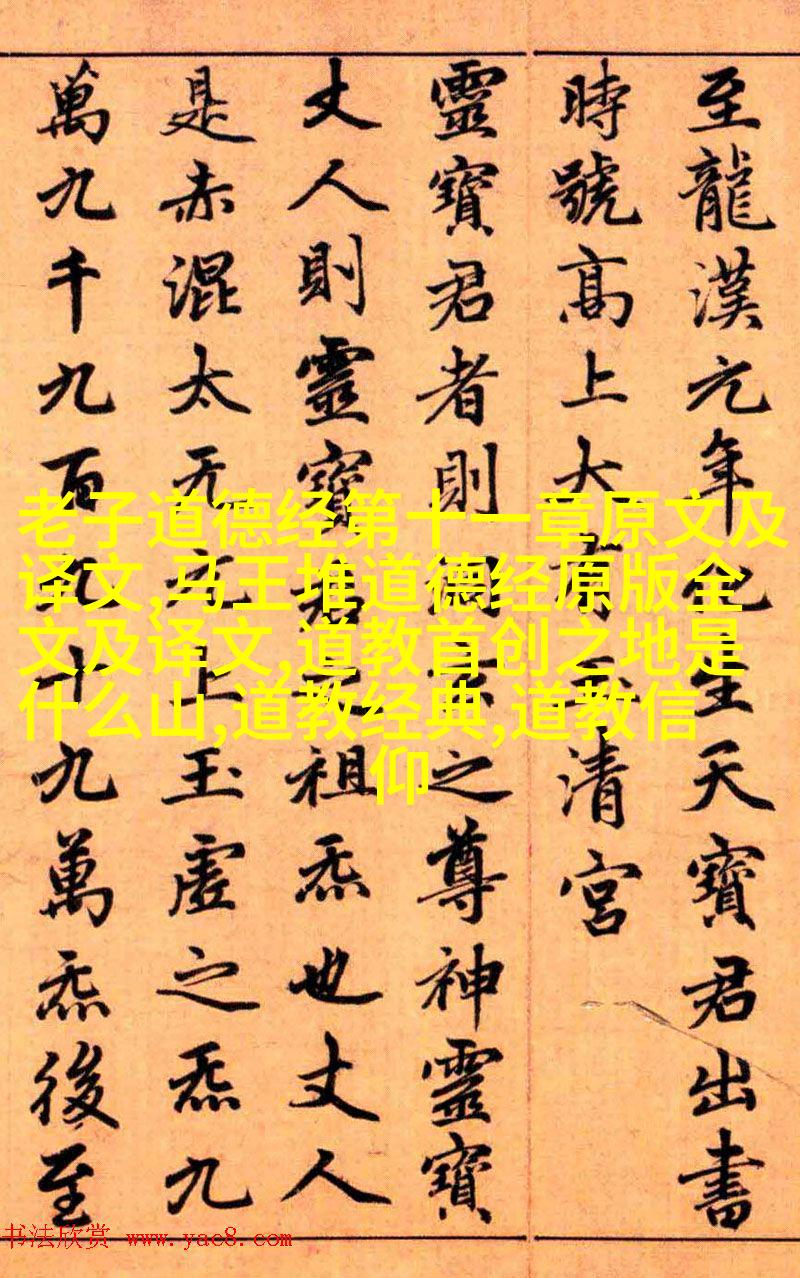 至龍漢元年化生天寶君出書
時號高上大有玉清宮
靈寶君者則洞玄之尊神靈寶
丈人則靈寶君祖炁也丈人
是赤混太无元上玉虛之炁九
萬九千九百九十九萬炁後至
老子道德经第十一章原文及
译文,马王堆道德经原版全
文及译文,道教首创之地是
什么山,道教经典,道教信
仰
书法欣赏 www.yac8.com